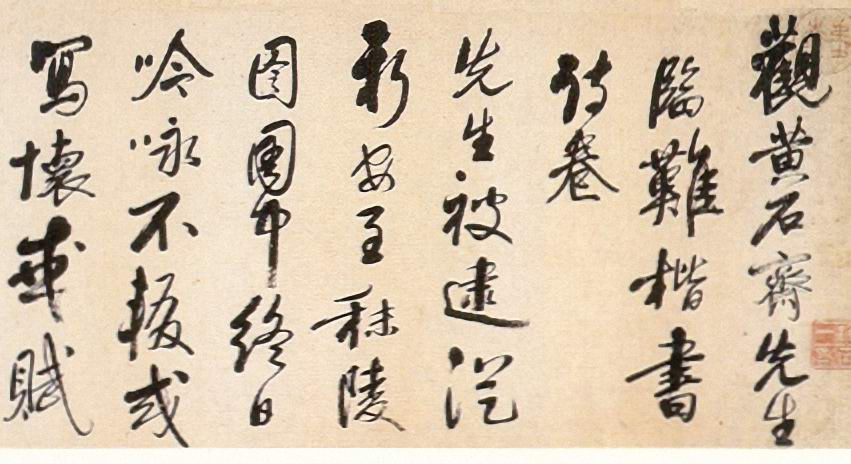 觀黄石齋先生
臨難楷書
詩卷
先生被逮從
新安至秣陵
囹圄中終日
吟咏不輟或
寫懷或賦